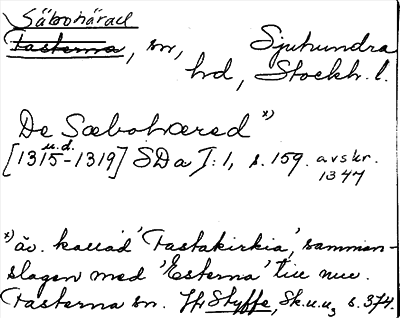 Säbohärad
Fasterna, sn, Sjuhundra
hd, Stockh. l.
De Sæbohæred x)
[1315 u.d. -1319] SDa I:1, s. 159. avskr.
1347
x) äv. kallad 'Fastakirkia', samman-
slagen med 'Esterna' till nuv.
Fasterna sn. Jfr Styffe, Sk.u.u, s. 374.